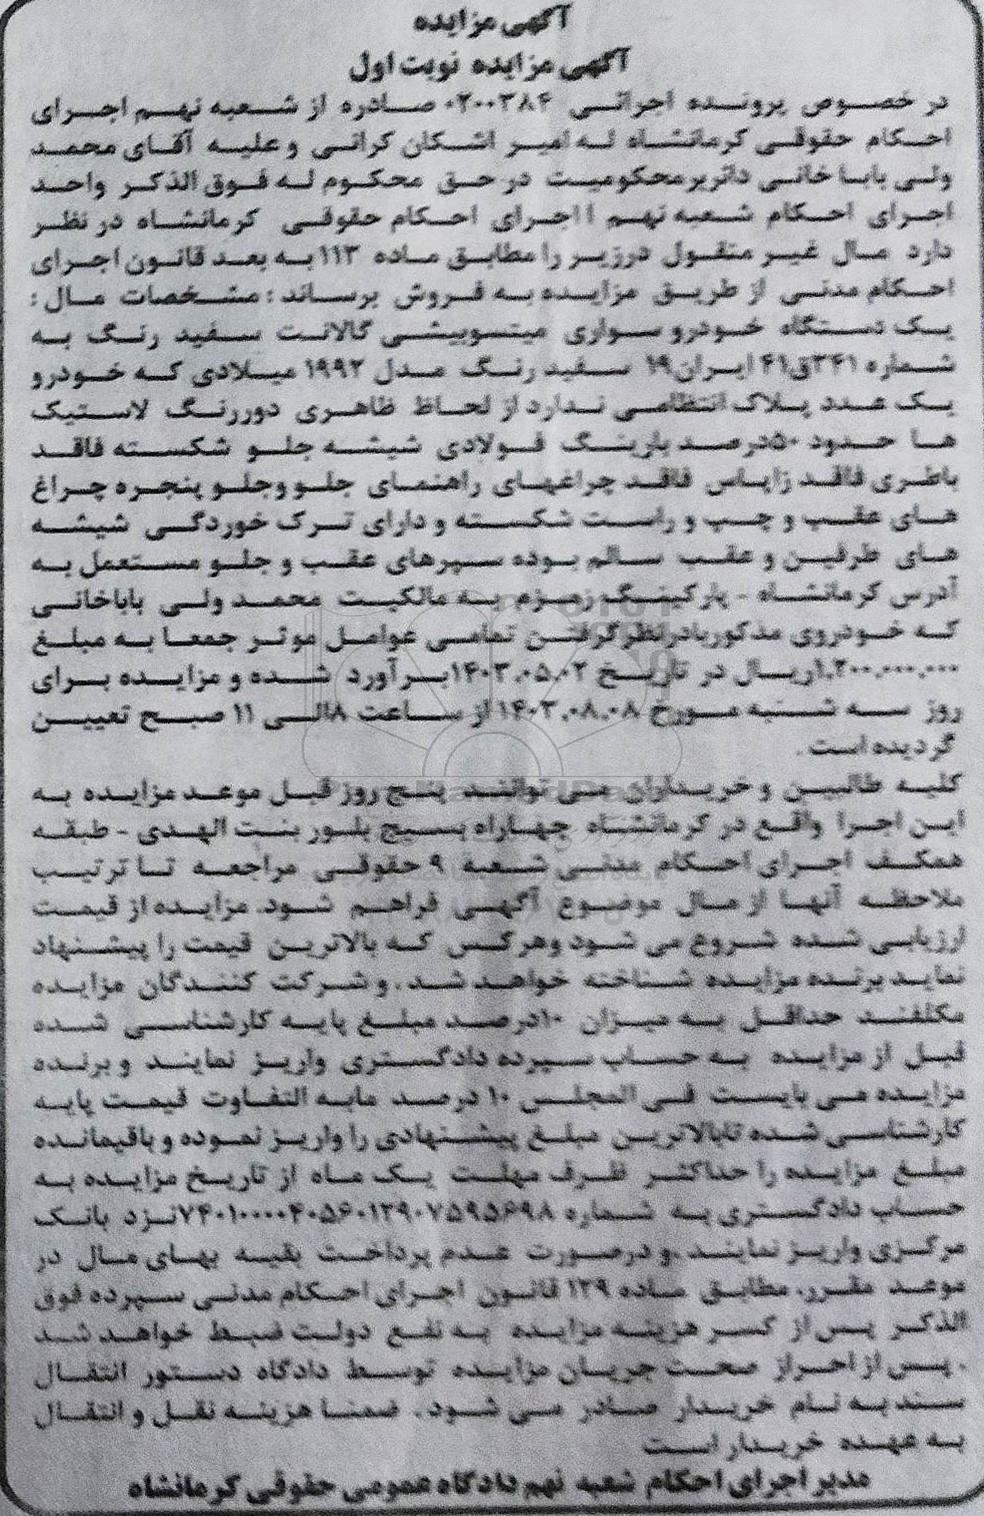 آگهی مزایده
آگهی مزایده نوبت اول
در خصوص پرونده اجرائی ۰۲۰۰۳۸۴ صادره از شعبه نهم اجرای
احکام حقوقی کرمانشاه له امیر اشکان کرانی و علیه آقای محمد
ولی بابا خانی دائربرمحکومیت در حق محکوم له فوق الذکر واحد
اجرای احکام شعبه نهم ااجرای احکام حقوقی کرمانشاه در نظر
دارد مال غیر منقول درزیر را مطابق ماده ۱۱۳ به بعد قانون اجرای
احکام مدنی از طریق مزایده به فروش برساند : مشخصات مال :
یک دستگاه خودرو سواری میتسوبیشی گالانت سفید رنگ به
شماره ۳۴۱ق۴۱ ایران۱۹ سفید رنگ مدل ۱۹۹۲ میلادی که خودرو
یک عدد پلاک انتظامی ندارد از لحاظ ظاهری دوررنگ لاستیک
ها حدود ۵۰درصد بارینگ فولادی شیشه جلو شکسته فاقد
باطری فاقد زاپاس فاقد چراغهای راهنمای جلو وجلو پنجره چراغ
های عقب و چپ و راست شکسته و دارای ترک خوردگی شیشه
های طرفین و عقب سالم بوده سپرهای عقب و جلو مستعمل به
آدرس کرمانشاه - پارکینگ زمزم به مالکیت محمد ولی باباخانی
که خودروی مذکوربادرنظرگرفتن تمامی عوامل موثر جمعا به مبلغ
۱,۲۰۰,۰۰۰,۰۰۰ریال در تاریخ ۱۴۰۳.۰۵.۰۲برآورد شده و مزایده برای
روز سه شنبه مورخ ۱۴۰۳.۰۸.۰۸ از ساعت ۸الی ۱۱ صبح تعیین
گردیده است .
کلیه طالبین و خریداران می توانند پنج روز قبل موعد مزایده به
این اجرا واقع در کرمانشاه چهاراه بسیج بلور بنت الهدی - طبقه
همکف اجرای احکام مدنی شعبه ۹ حقوقی مراجعه تا ترتیب
ملاحظه آنها از مال موضوع آگهی فراهم شود. مزایده از قیمت
ارزیابی شده شروع می شود وهرکس که بالاترین قیمت را پیشنهاد
نماید برنده مزایده شناخته خواهد شد . و شرکت کنندگان مزایده
مکلفند حداقل به میزان ۱۰درصد مبلغ پایه کارشناسی شده
قبل از مزایده به حساب سپرده دادگستری واریز نمایند و برنده
مزایده می بایست فی المجلس ۱۰ درصد مابه التفاوت قیمت پایه
کارشناسی شده تابالاترین مبلغ پیشنهادی را واریز نموده و باقیمانده
مبلغ مزایده را حداکثر ظرف مهلت یک ماه از تاریخ مزایده به
حساب دادگستری به شماره ۷۴۰۱۰۰۰۰۴۰۵۶۰۱۲۹۰۷۵۹۵۶۹۸نزد بانک
مرکزی واریز نمایند .و درصورت عدم پرداخت بقیه بهای مال در
موعد مقرر، مطابق ماده ۱۲۹ قانون اجرای احکام مدنی سپرده فوق
الذکر پس از کسر هزینه مزایده به نفع دولت ضبط خواهد شد
. پس از احراز صحت جریان مزایده توسط دادگاه دستور انتقال
سند به نام خریدار صادر می شود . ضمنا هزینه نقل و انتقال
به عهده خریدار است
مدیر اجرای احکام شعبه نهم دادگاه عمومی حقوقی کرمانشاه